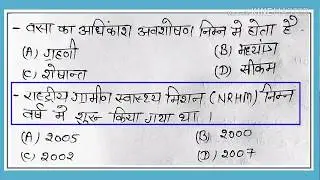 - वसा का अधिकांश अवशोषण निम्न मे होता है
(A) ग्रहणी (B) मध्यांत्र
(C) शेषान्त्र (D) सीकम
- राष्ट्रीय ग्रामीण स्वास्थ्य मिशन (NRHM) निम्न
वर्ष मे शुरू किया गया था ।
(A) 2005 (B) 2000
(C) 2002 (D) 2007